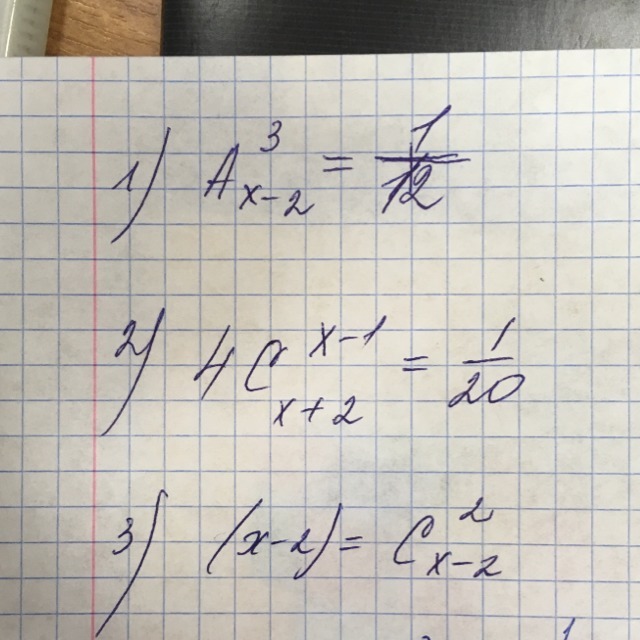 1) A_{x-2}^{3} = \frac{1}{12}
2) 4C_{x+2}^{x-1} = \frac{1}{20}
3) (x-2) = C_{x-2}^{2}